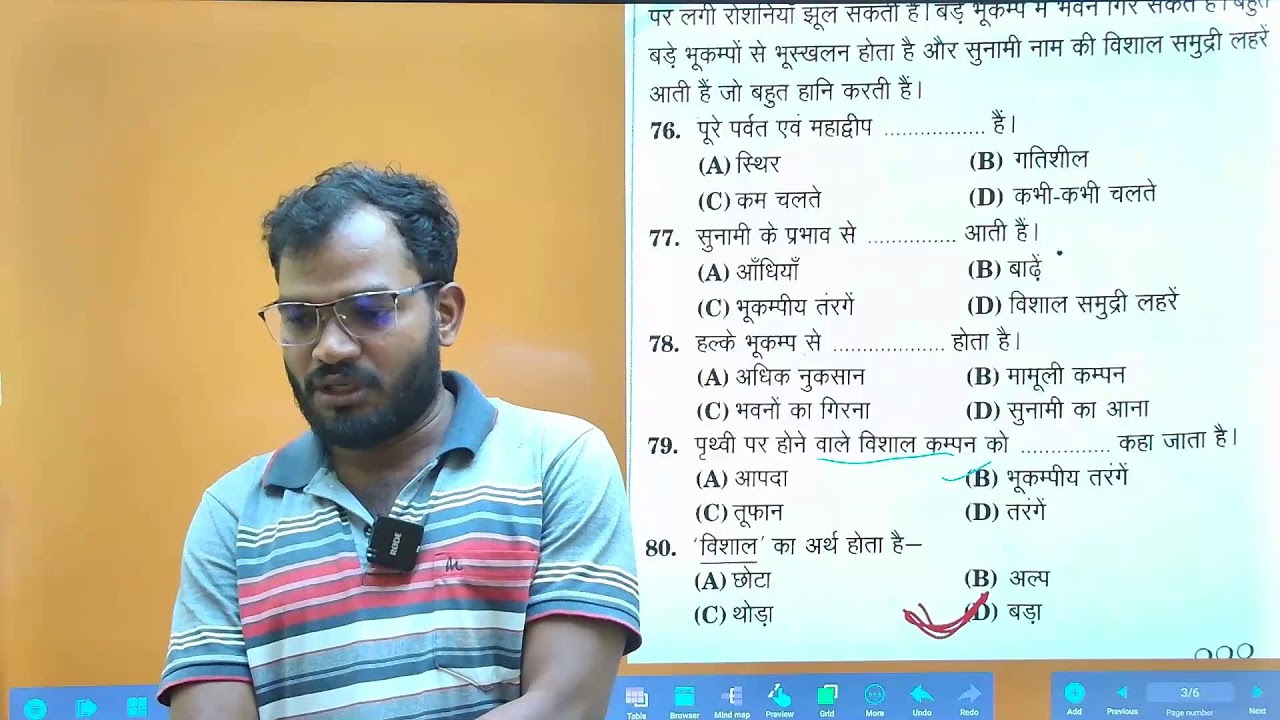 पर लगी रोशनियाँ झूल सकती हैं। बड़े भूकम्प में भवन गिर सकते हैं। बहुत
बड़े भूकम्पों से भूस्खलन होता है और सुनामी नाम की विशाल समुद्री लहरें
आती हैं जो बहुत हानि करती हैं।
76. पूरे पर्वत एवं महाद्वीप ................. हैं।
(A) स्थिर (B) गतिशील
(C) कम चलते (D) कभी-कभी चलते
77. सुनामी के प्रभाव से ............... आती हैं।
(A) आँधियाँ (B) बाढ़ें
(C) भूकम्पीय तंरगें (D) विशाल समुद्री लहरें
78. हल्के भूकम्प से ................... होता है।
(A) अधिक नुकसान (B) मामूली कम्पन
(C) भवनों का गिरना (D) सुनामी का आना
79. पृथ्वी पर होने वाले विशाल कम्पन को ............... कहा जाता है।
(A) आपदा (B) भूकम्पीय तरंगें
(C) तूफान (D) तरंगें
80. 'विशाल' का अर्थ होता है–
(A) छोटा (B) अल्प
(C) थोड़ा (D) बड़ा
RODE
Table Browser Mind map Preview Grid More Undo Redo
Add Previous 3/6 Page number Next